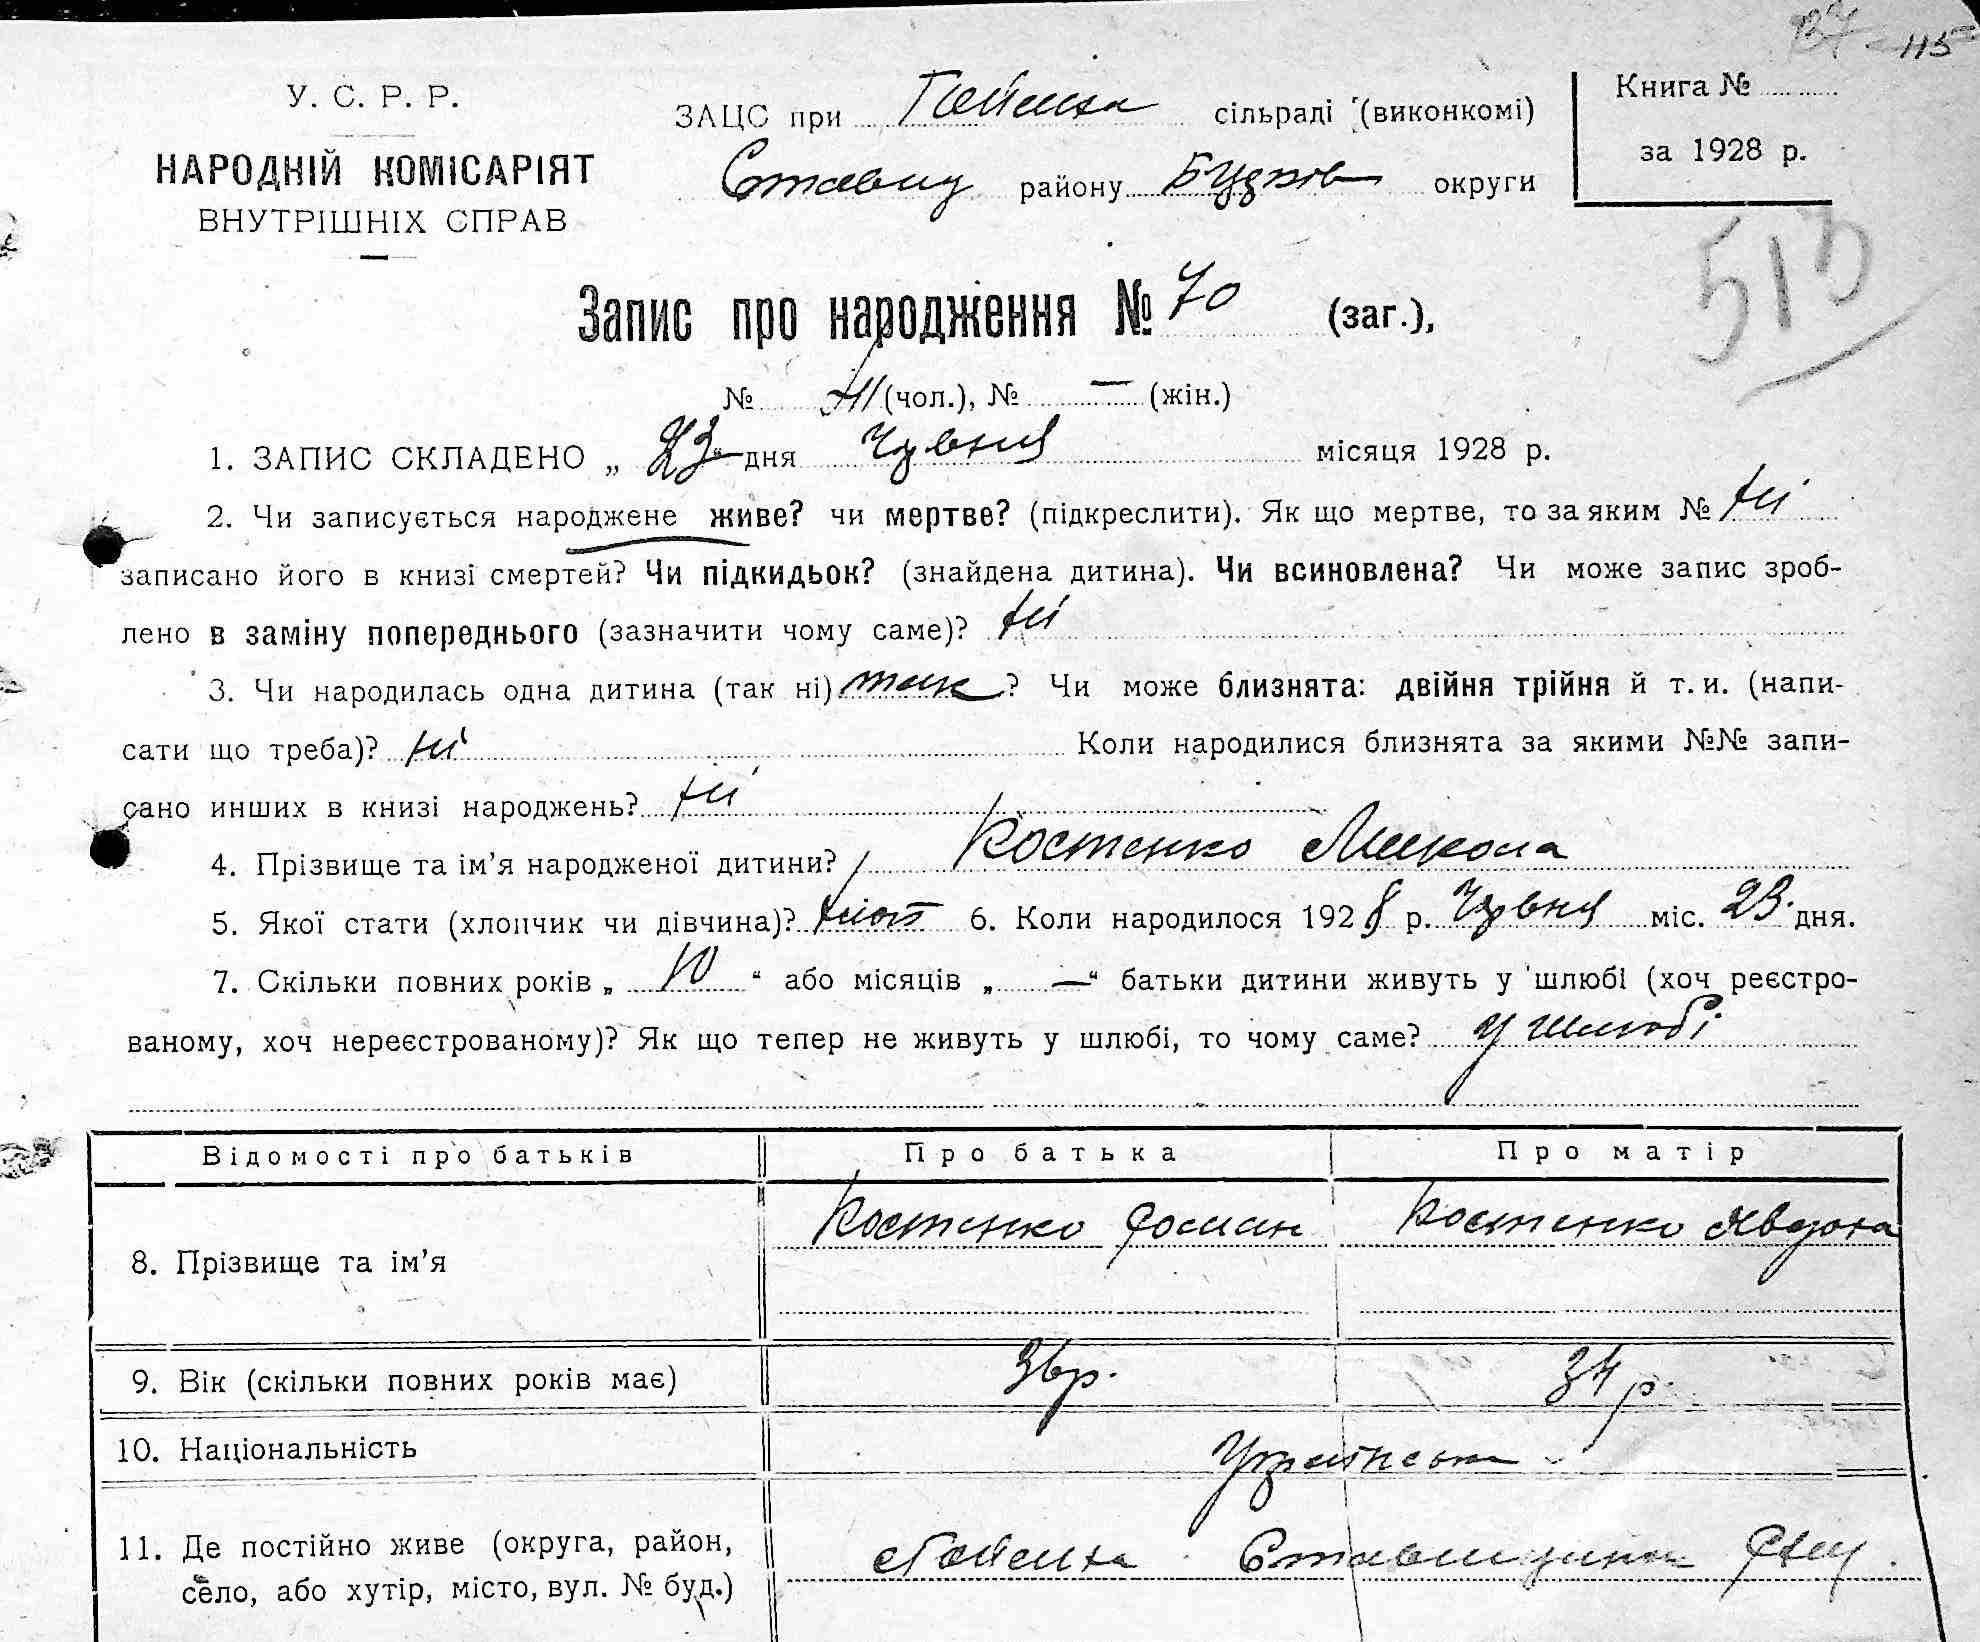 115
У. С. Р. Р.
НАРОДНІЙ КОМІСАРІЯТ
ВНУТРІШНІХ СПРАВ
ЗАЦС при Гейсиха сільраді (виконкомі)
району округи
Книга №
за 1928 р.
513
Запис про народження № 70 (заг.),
№ (чол.), № — (жін.)
1. ЗАПИС СКЛАДЕНО „ 23 “ дня Червня місяця 1928 р.
2. Чи записується народжене живе? чи мертве? (підкреслити). Як що мертве, то за яким № ні
записано його в книзі смертей? Чи підкидьок? (знайдена дитина). Чи всиновлена? Чи може запис зроб-
лено в заміну попереднього (зазначити чому саме)? ні
3. Чи народилась одна дитина (так ні) так ? Чи може близнята: двійня трійня й т. и. (напи-
сати що треба)? ні Коли народилися близнята за якими №№ запи-
сано инших в книзі народжень? ні
4. Прізвище та ім’я народженої дитини? Костенко Микола
5. Якої стати (хлопчик чи дівчина)? 6. Коли народилося 1928 р. Червня міс. 23 дня.
7. Скільки повних років „ 10 “ або місяців „ — “ батьки дитини живуть у шлюбі (хоч реєстро-
ваному, хоч нереєстрованому)? Як що тепер не живуть у шлюбі, то чому саме? У шлюбі
Відомості про батьків Про батька Про матір
8. Прізвище та ім’я Костенко Роман Костенко Явдоха
9. Вік (скільки повних років має) 36 р. 34 р.
10. Національність Українська
11. Де постійно живе (округа, район,
село, або хутір, місто, вул. № буд.)